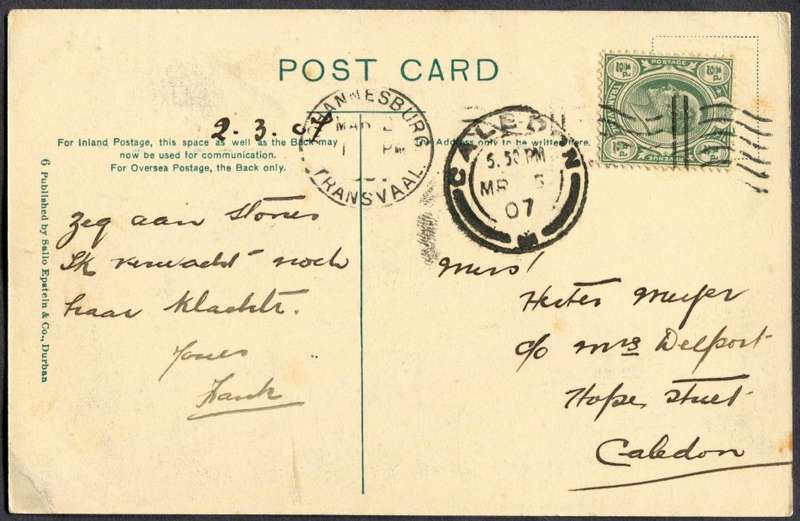 POST CARD
2. 3. 07
For Inland Postage, this space as well as the Back may
now be used for communication.
For Oversea Postage, the Back only.
The Address only to be written here.
JOHANNESBURG
MAR 2
1 PM
TRANSVAAL
CALEDON
5.50 PM
MR 5
07
POSTAGE
½d
½d
REVENUE
½d
½d
6 Published by Sallo Epstein & Co., Durban
Zeg aan Stories
Ik verwacht noch
haar klachte.
Yours
Hank
Miss!
Hester Meyer
c/o Mrs Delport
Hope Street
Caledon